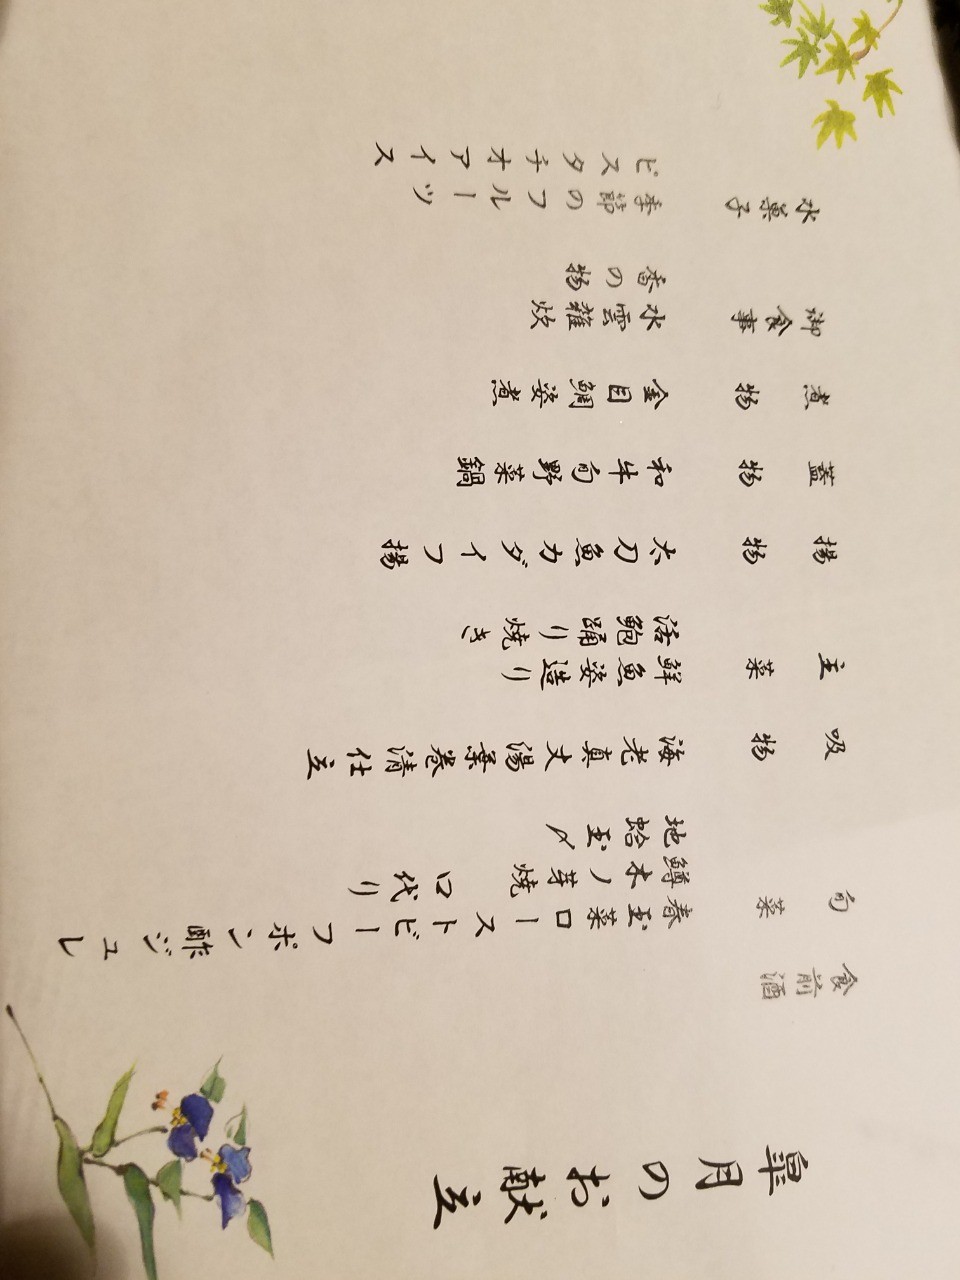 皐月のお献立
食前酒
旬菜 春玉菜ローストビーフポン酢ジュレ
鱒木ノ芽焼 口代り
地蛤玉〆
吸物 海老真丈湯葉巻清仕立
主菜 鮮魚姿造り
活鮑踊り焼き
揚物 太刀魚カダイフ揚
蓋物 和牛旬野菜鍋
煮物 金目鯛姿煮
御食事 水雲雑炊
香の物
水菓子 季節のフルーツ
ピスタチオアイス